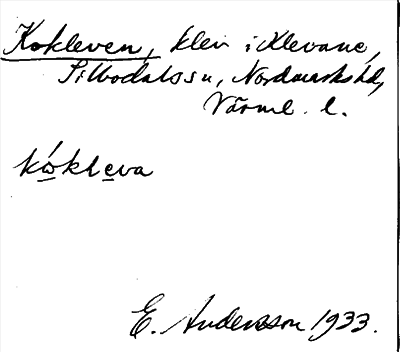 Kokleven, klev i Klevane,
Silbodals sn, Nordmarks hd,
Värml. l.
kókleva
E. Andersson 1933.